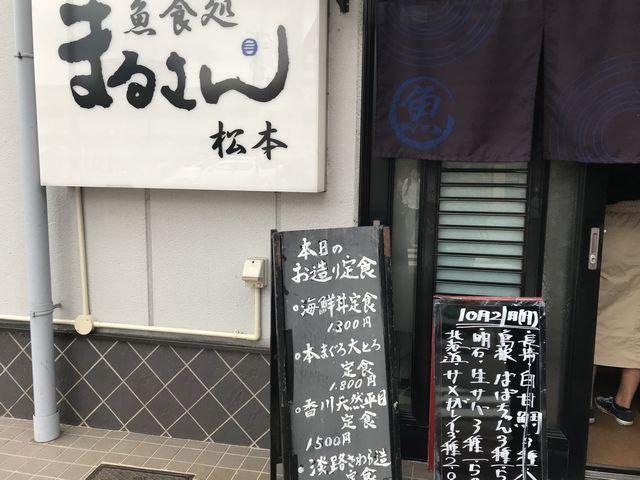 魚食処
まるさん
松本
魚
本日の
お造り定食
海鮮丼定食
1,300円
本まぐろ大とろ
定食
1,800円
香川天然平目
定食
1500円
淡路さわら造
定食
10月2日(月)
長崎白甘鯛3種
島根ばばちゃん3種
明石・生サバ3種
北海道サメガレイ3種